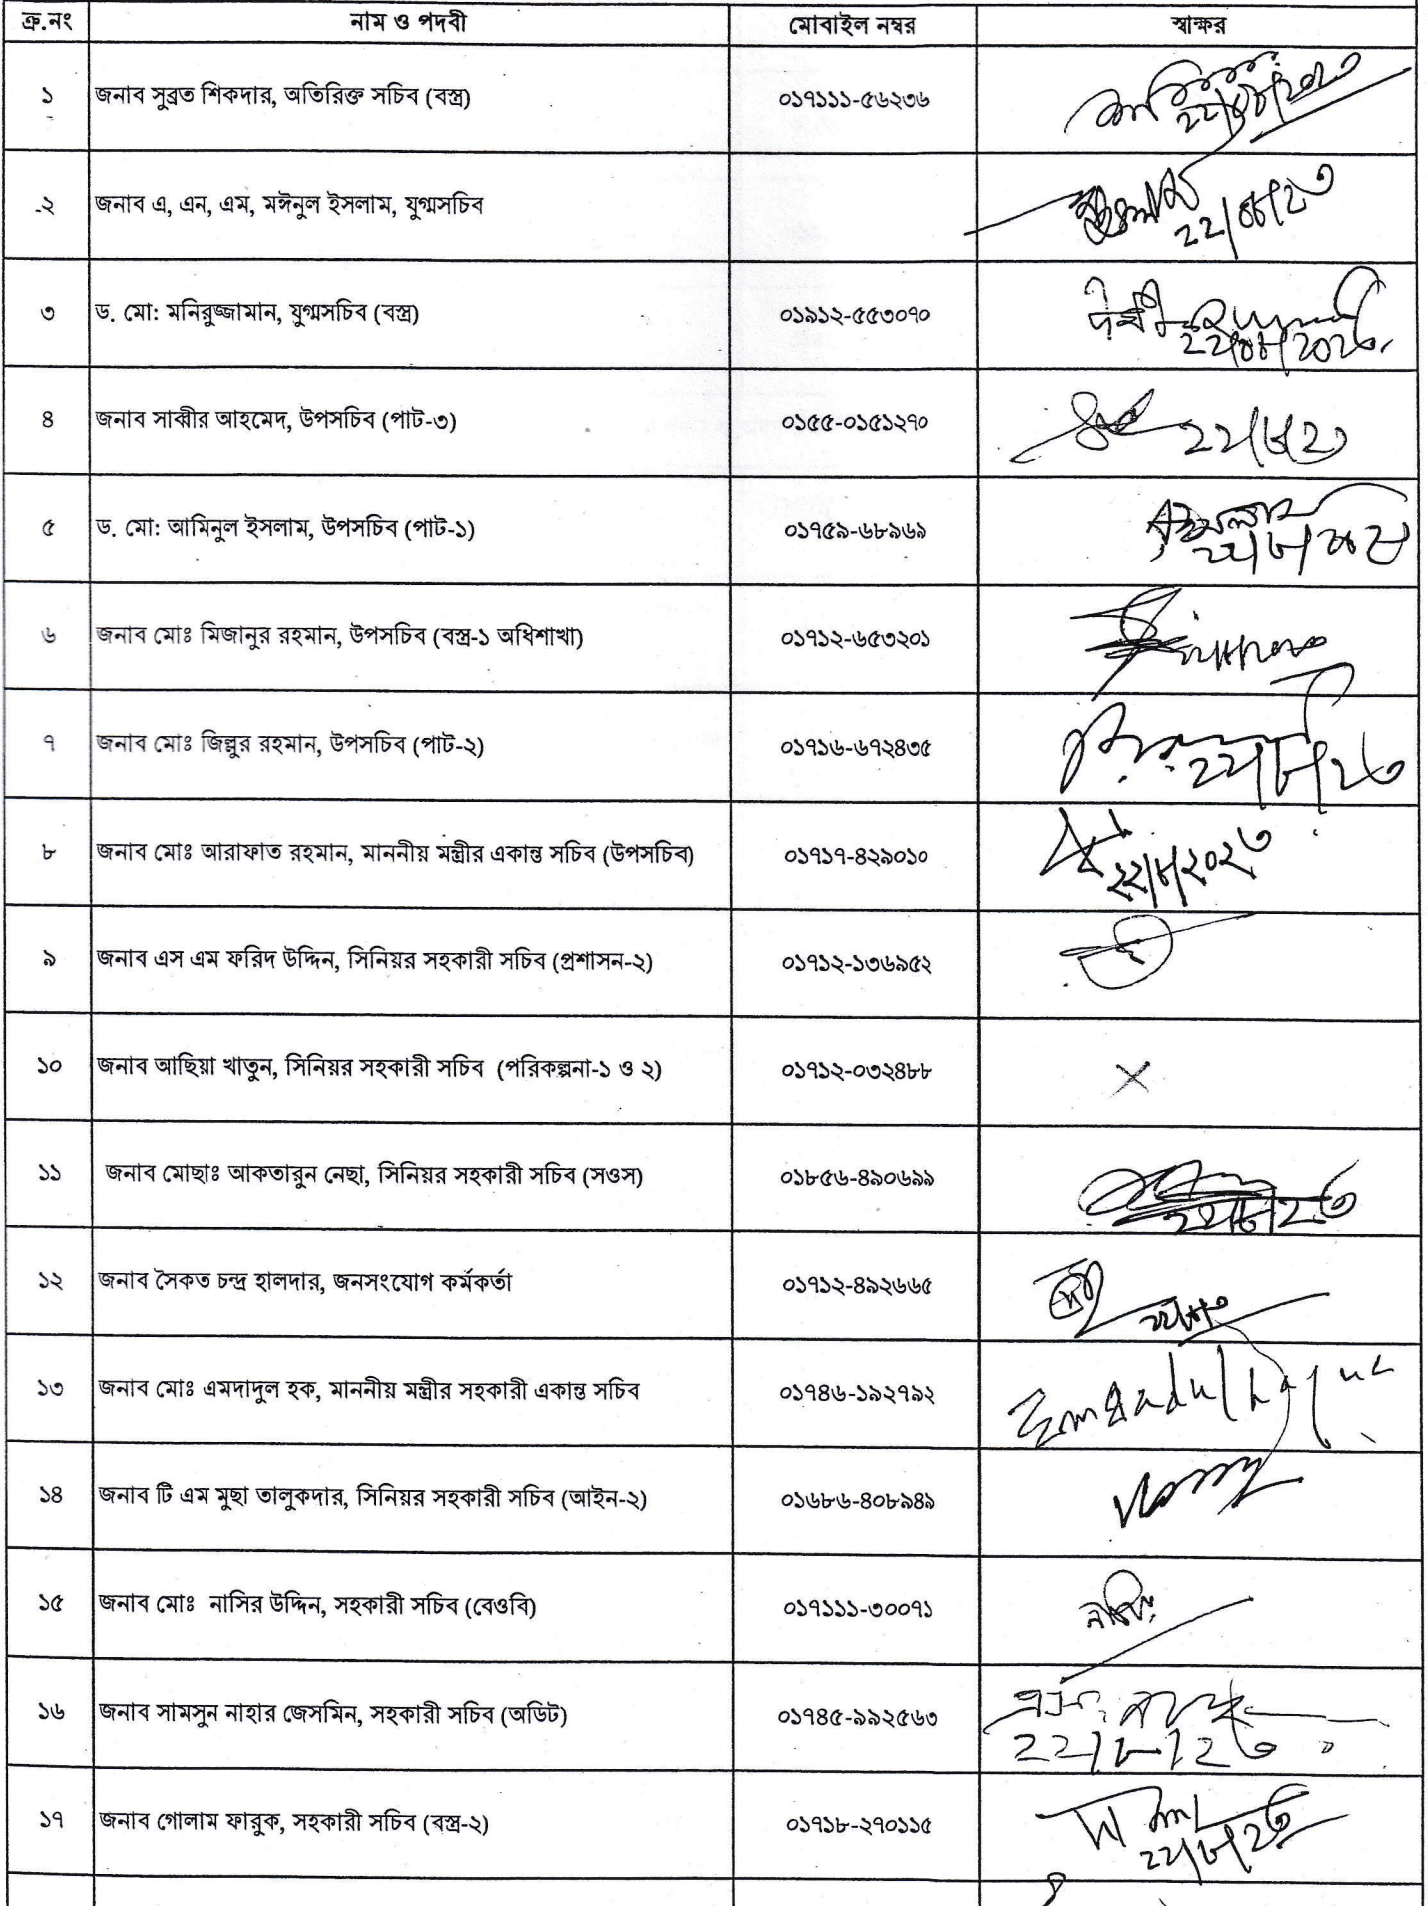 ক্র.নং নাম ও পদবী মোবাইল নম্বর স্বাক্ষর
১ জনাব সুব্রত শিকদার, অতিরিক্ত সচিব (বস্ত্র) ০১৭১১১-৫৬২৩৬
২২/০৮/২০২৩
২ জনাব এ, এন, এম, মঈনুল ইসলাম, যুগ্মসচিব
২২/০৮/২৩
৩ ড. মো: মনিরুজ্জামান, যুগ্মসচিব (বস্ত্র) ০১৯১২-৫৫৩০৭০
২২/০৮/২০২৩
৪ জনাব সাব্বীর আহমেদ, উপসচিব (পাট-৩) ০১৫৫-০১৫১২৭০ ২২/৮/২৩
৫ ড. মো: আমিনুল ইসলাম, উপসচিব (পাট-১) ০১৭৫৯-৬৮৯৬৯
৬ জনাব মোঃ মিজানুর রহমান, উপসচিব (বস্ত্র-১ অধিশাখা) ০১৭১২-৬৫৩২০১
৭ জনাব মোঃ জিল্লুর রহমান, উপসচিব (পাট-২) ০১৭১৬-৬৭২৪৩৫ ২২/৮/২৩
৮ জনাব মোঃ আরাফাত রহমান, মাননীয় মন্ত্রীর একান্ত সচিব (উপসচিব) ০১৭১৭-৪২৯০১০ ২২/৮/২০২৩
৯ জনাব এস এম ফরিদ উদ্দিন, সিনিয়র সহকারী সচিব (প্রশাসন-২) ০১৭১২-১৩৬৯৫২
১০ জনাব আছিয়া খাতুন, সিনিয়র সহকারী সচিব (পরিকল্পনা-১ ও ২) ০১৭১২-০৩২৪৮৮ ×
১১ জনাব মোছাঃ আকতারুন নেছা, সিনিয়র সহকারী সচিব (সওস) ০১৮৫৬-৪৯০৬৯৯
২২/৮/২৩
১২ জনাব সৈকত চন্দ্র হালদার, জনসংযোগ কর্মকর্তা ০১৭১২-৪৯২৬৬৫
১৩ জনাব মোঃ এমদাদুল হক, মাননীয় মন্ত্রীর সহকারী একান্ত সচিব ০১৭৪৬-১৯২৭৯২ Emdadul haque
১৪ জনাব টি এম মুছা তালুকদার, সিনিয়র সহকারী সচিব (আইন-২) ০১৬৮৬-৪০৮৯৪৯
১৫ জনাব মোঃ নাসির উদ্দিন, সহকারী সচিব (বেওবি) ০১৭১১১-৩০০৭১
১৬ জনাব সামসুন নাহার জেসমিন, সহকারী সচিব (অডিট) ০১৭৪৫-৯৯২৫৬৩
২২/৮/২৩
১৭ জনাব গোলাম ফারুক, সহকারী সচিব (বস্ত্র-২) ০১৭১৮-২৭০১১৫
২২/৮/২৩